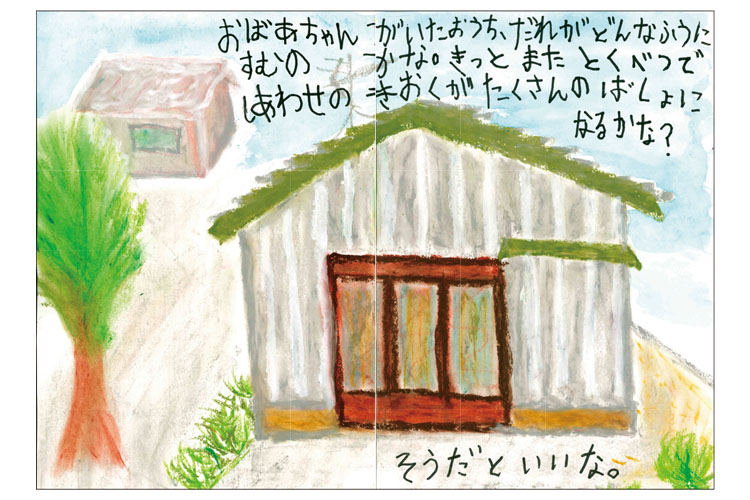 おばあちゃんがいたおうち、だれがどんなふうに
すむのかな。きっと また とくべつで
しあわせのきおくがたくさんのばしょに
なるかな？
そうだといいな。